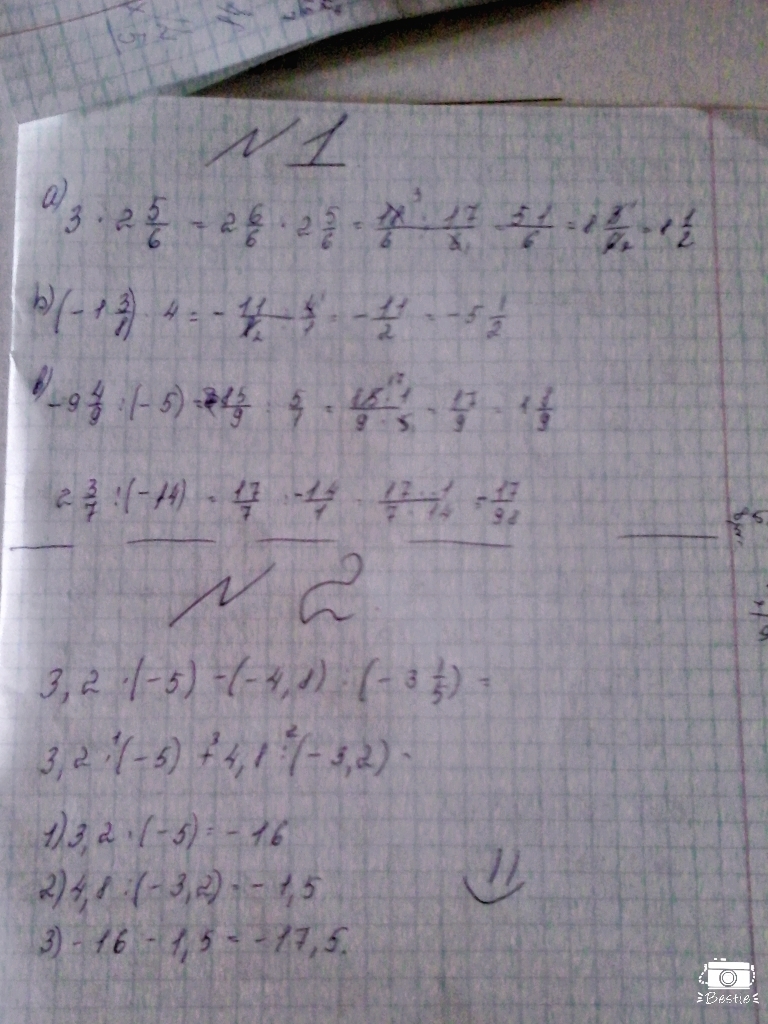 N 1
а) 3 · 2 5/6 = 2 6/6 · 2 5/6 = 18 · 17/6 · 6 = 51/6 = 8 3/6 = 8 1/2
b) (-1 3/8) · 4 = - 11/8 · 4/1 = - 11/2 = -5 1/2
в) -9 4/9 : (-5) = 85/9 : 5/1 = 85 · 1/9 · 5 = 17/9 = 1 8/9
2 3/7 : (-14) = 17/7 : -14/1 = 17 · -1/7 · 14 = -17/98
N 2
3,2 · (-5) - (-4,8) : (-3 1/5) =
3,2 · (-5) + 4,8 : (-3,2) =
1) 3,2 · (-5) = -16
2) 4,8 : (-3,2) = -1,5
3) -16 - 1,5 = -17,5.
Bestie